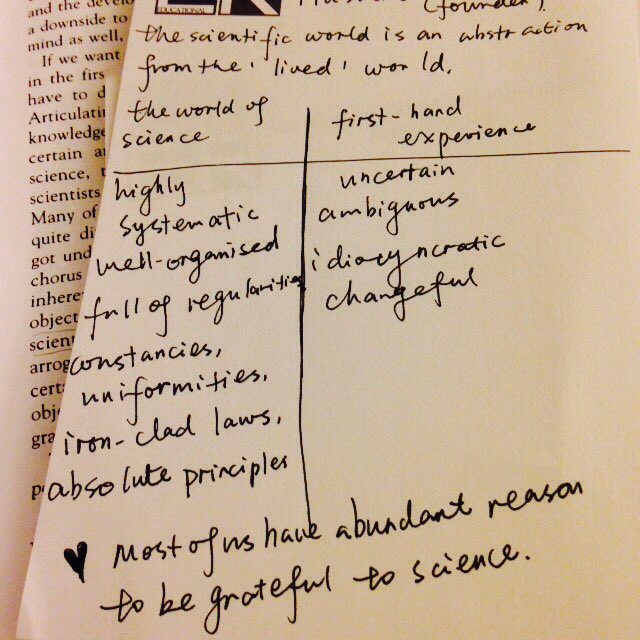 and the develo
a downside to
mind as well,
If we want
in the firs
have to d
Articulatin
knowledge
certain a
science, t
scientists
Many of
quite di
got und
chorus
inhere
object
scien
arrog
certa
obje
gra
p
EDUCATIONAL
(founder).
the scientific world is an abstraction
from the 'lived' world.
the world of
science
first-hand
experience
highly
systematic
well-organised
full of regularities
constancies,
uniformities,
iron-clad laws,
absolute principles
uncertain
ambiguous
idiosyncratic
changeful
♥ Most of us have abundant reason
to be grateful to science.